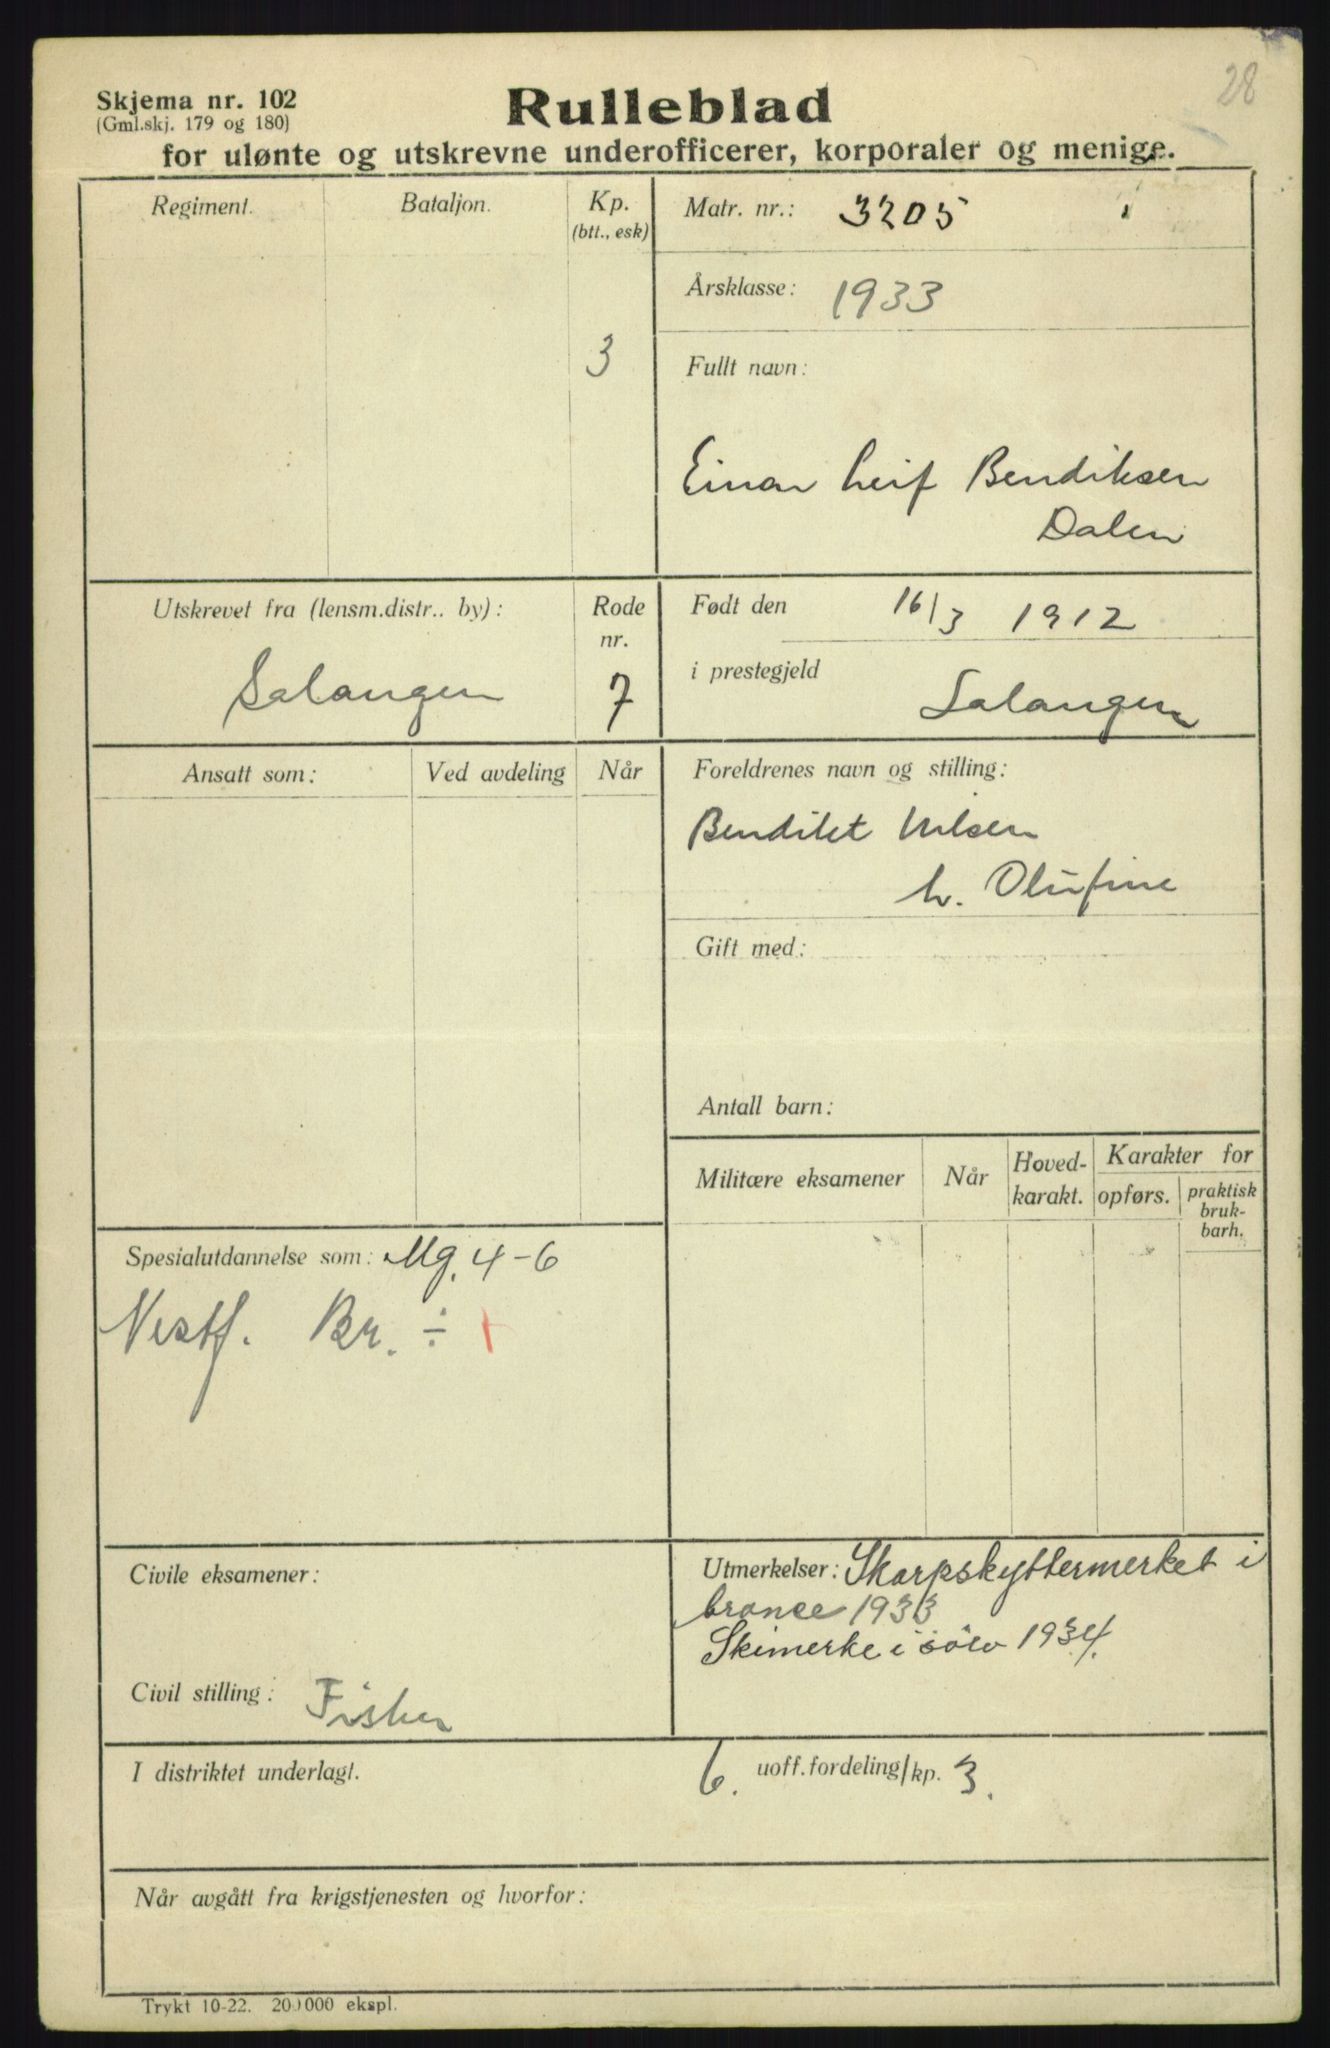 28
Skjema nr. 102
(Gml.skj. 179 og 180)
Rulleblad
for ulønte og utskrevne underofficerer, korporaler og menige.
Regiment.
Bataljon.
Kp.
(btt., esk)
3
Matr. nr.: 3205
Årsklasse: 1933
Fullt navn:
Einar Leif Bendiksen
Dalen
Utskrevet fra (lensm.distr.. by):
Salangen
Rode
nr.
7
Født den 16/3 1912
i prestegjeld Salangen
Ansatt som:
Ved avdeling
Når
Foreldrenes navn og stilling:
Bendikt Nilsen
h. Olufine
Gift med:
Antall barn:
Militære eksamener
Når
Hoved-
karakt.
Karakter for
opførs.
praktisk
bruk-
barh.
Spesialutdannelse som: Mg. 4-6
Vestf. Br. ÷ 1
Civile eksamener:
Civil stilling: Fisker
Utmerkelser: Skarpskyttermerket i
bronce 1933
Skimerke i sölv 1934.
I distriktet underlagt.
6. uoff.fordeling/kp. 3.
Når avgått fra krigstjenesten og hvorfor:
Trykt 10-22. 200000 ekspl.